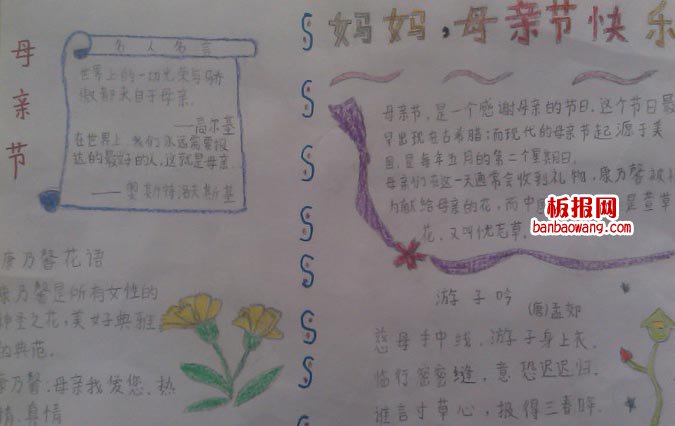 母亲节
名人名言
世界上的一切光荣与骄
傲都来自于母亲。
——高尔基
在世界上,我们永远需要报
达的最好的人,这就是母亲
——奥斯特洛夫斯基
康乃馨花语
康乃馨是所有女性的
神圣之花,美好典雅
的典范。
康乃馨:母亲我爱您、热
情、真情
妈妈,母亲节快乐
母亲节,是一个感谢母亲的节日,这个节日最
早出现在古希腊;而现代的母亲节起源于美
国,是每年五月的第二个星期日。
母亲们在这一天通常会收到礼物,康乃馨被
为献给母亲的花,而中国 是萱草
花,又叫忘忧草。
板报网
banbaowang.com
游子吟
(唐)孟郊
慈母手中线,游子身上衣。
临行密密缝,意恐迟迟归。
谁言寸草心,报得三春晖。